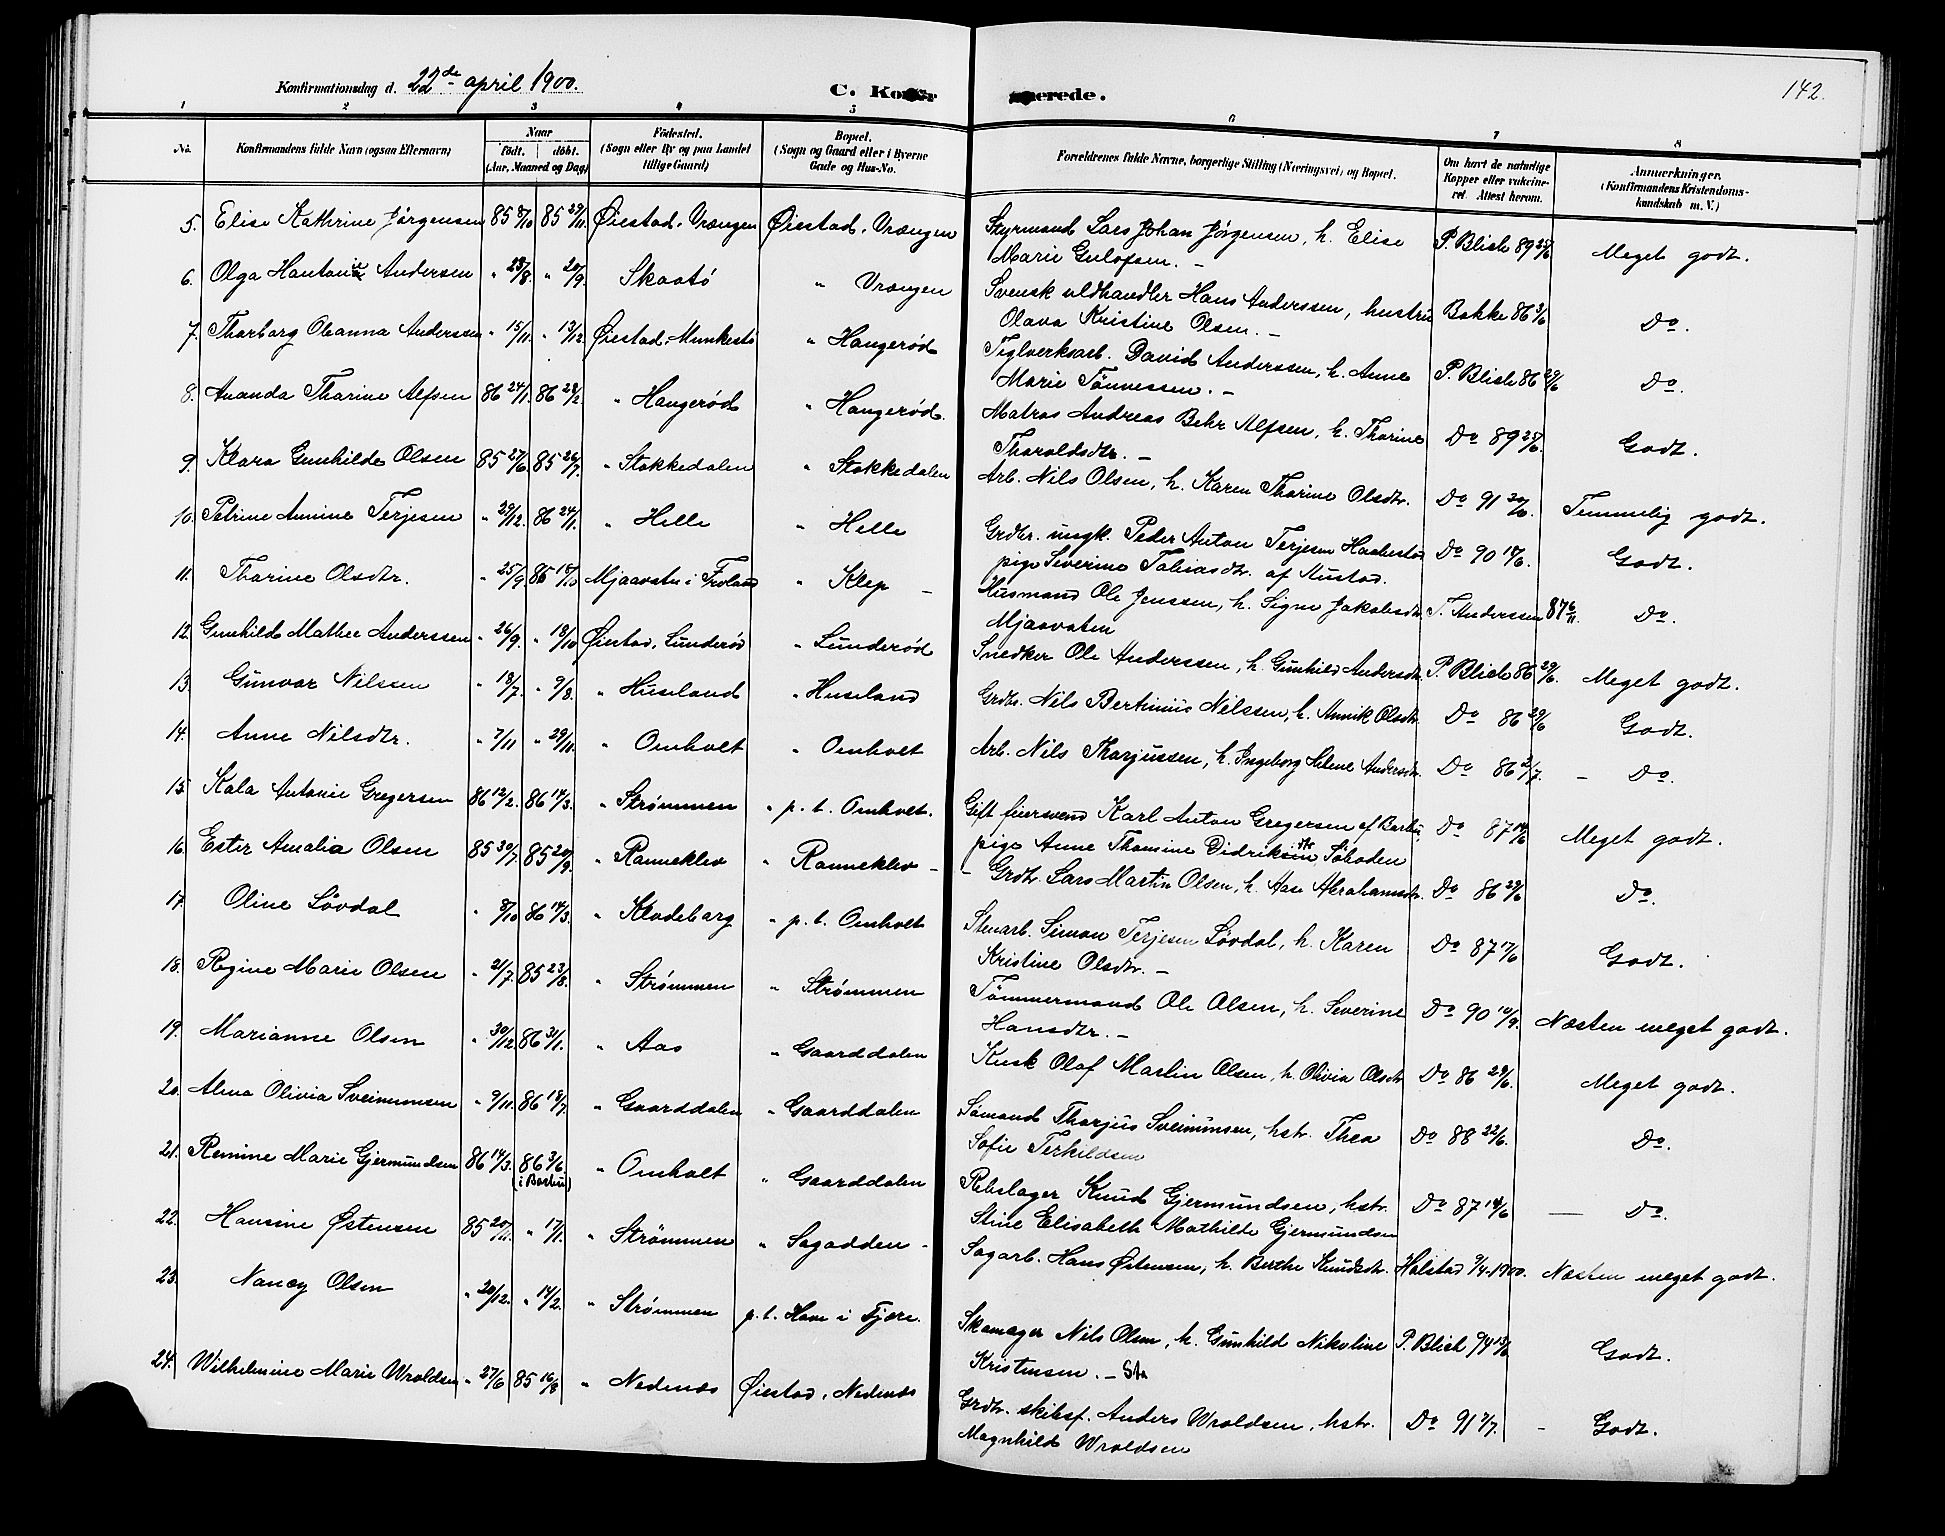 Konfirmationsdag d. 22de april 1900.
C. Konfir
merede.
142.
1 2 3 4 5 6 7 8
No. Konfirmandens fulde Navn (ogsaa Efternavn) Naar født. døbt. (Aar, Maaned og Dag) Fødested. (Sogn eller By og paa Landet tillige Gaard) Bopæl. (Sogn og Gaard eller i Byerne Gade og Hus-No. Forældrenes fulde Navne, borgerlige Stilling (Næringsvei) og Bopæl. Om havt de naturlige Kopper eller vakcineret. Attest herom. Anmærkninger. (Konfirmandens Kristendomskundskab m. V.)
5. Elise Kathrine Jørgensen 85 8/10 85 29/11 Øiestad, Vrængen Øiestad, Vrængen Styrmand Lars Johan Jørgensen, h. Elise P. Blich 89 25/6 Meget godt.
Marie Gulofsen. –
6. Olga Hantonie Andersen " 23/8. " 20/9. Skaatö " Vrængen Svensk uldhandler Hans Anderssen, hustru Bakke 86 3/6 Do.
Olava Kristine Olsen. –
7. Tharborg Oleanna Anderssen " 15/11. " 13/12. Øiestad, Munkestö " Haugerød Teglverksarb. David Anderssen, h. Anne P. Blich 86 29/6 Do.
Marie Tönnessen. –
8. Ananda Tharine Alfsen 86 24/1. 86 28/2. " Haugerød " Haugerød. Matros Andreas Behr Alfsen, h. Tharine Do 89 25/6. Godt.
Tharaldsdtr. –
9. Klara Gunhilde Olsen 85 27/6. 85 26/7. " Stokkedalen " Stokkedalen Arb. Nils Olsen, h. Karen Tharine Olsdtr. Do 91 30/6. Temmelig godt.
10. Petrine Annine Terjesen " 29/12. 86 24/1. " Helle " Helle Grdbr. ungk. Peder Anton Terjesen Do 90 14/6. Godt.
pige Severine Tobiasdtr. af Rustad.
11. Tharine Olsdtr. " 25/9. 85 18/10 Mjaavatn i Froland " Klep – Husmand Ole Jenssen, h. Signe Jakobsdtr T. Anderssen 87 6/11. Do.
Mjaavatn
12. Gunhild Mathee Anderssen " 26/9. " 18/10 Øiestad, Lunderød " Lunderød Snedker Ole Anderssen, h. Gunhild Andersdtr. P. Blich 86 29/6. Meget godt.
13. Gunvor Nilssen " 18/7. " 9/8. " Huseland " Huseland Grdbr. Nils Bertinius Nilssen, h. Annik Olsdtr. Do 86 29/6 Godt.
14. Anne Nilsdtr. " 7/11 " 29/11. " Omholt " Omholt Arb. Nils Tharjussen, h. Ingeborg Helene Andersdtr. Do 86 2/7. – Do.
15. Kala Antonie Gregersen 86 12/2. 86 14/3. " Strømmen " p. t. Omholt. Gift feiersvend Karl Anton Gregersen af Barbu, Do 87 14/6 Meget godt.
pige Anne Thomine Didriksen dtr Söboden
16. Ester Amalia Olsen 85 30/7. 85 20/9. " Ranneklev " Ranneklev – – Grdbr. Lars Martin Olsen, h. Aase Abrahamsdtr. Do 86 29/6 Do.
17. Oline Løvdal " 8/10 86 14/3. " Klodeborg " p. t. Omholt Stenarb. Simon Terjesen Løvdal, h. Karen Do 87 17/6 Godt.
Kristine Olsdtr. –
18. Regine Marie Olsen " 21/7. 85 23/8. " Strømmen " Strømmen Tömmermand Ole Olsen, h. Severine Do 90 10/9. Næsten meget godt.
Hansdtr. –
19. Marianne Olsen " 30/12. 86 31/1. " Aas " Gaarddalen Kusk Olaf Martin Olsen, h. Olivia Olsdtr Do 86 29/6. Meget godt.
20. Alma Olivia Sveinunsen " 9/11. 86 18/7. " Gaarddalen " Gaarddalen Sömand Tharjus Sveinunsen, hstr. Thea Do 88 22/6. Do.
Sofie Terkildsen
21. Remine Marie Gjermundsen 86 14/3. 86 3/6. (i Barbu) " Omholt " Gaarddalen Rebslager Knud Gjermundsen, hstr. Do 87 18/6 – Do.
Stine Elisabeth Mathilde Gjermundsen
22. Hansine Østensen 85 20/11. " 17/1. " Strømmen " Sagodden – Sagarb. Hans Østensen, h. Berthe Knudsdtr. Holstad 9/4.1900. Næsten meget godt.
23. Nancy Olsen " 20/12. " 14/2. " Strømmen p. t. Hove i Fjære. Skomager Nils Olsen, h. Gunhild Nikoline P. Blich 94 13/6 Godt.
Kristensen. –
24. Wilhelmine Marie Wroldsen " 27/6 85 16/8 " Nedenæs Øiestad, Nedenæs Grdbr. skibsf. Anders Wroldsen, hstr. Do 91 3/7. – Godt.
Magnhild Wroldsen